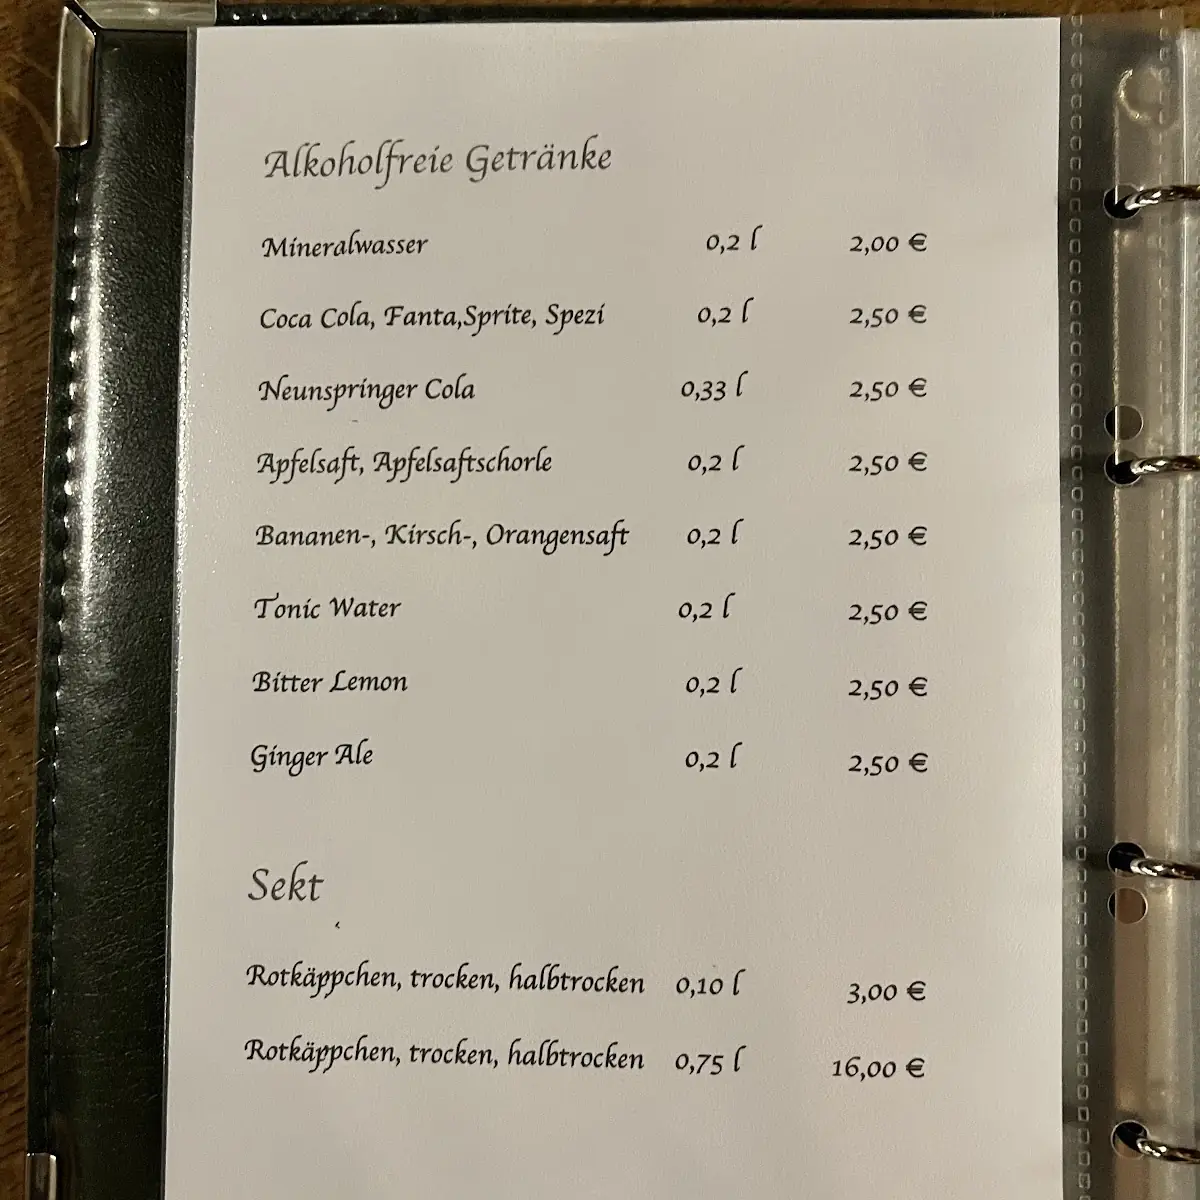 Alkoholfreie Getränke
Mineralwasser 0,2 l 2,00 €
Coca Cola, Fanta,Sprite, Spezi 0,2 l 2,50 €
Neunspringer Cola 0,33 l 2,50 €
Apfelsaft, Apfelsaftschorle 0,2 l 2,50 €
Bananen-, Kirsch-, Orangensaft 0,2 l 2,50 €
Tonic Water 0,2 l 2,50 €
Bitter Lemon 0,2 l 2,50 €
Ginger Ale 0,2 l 2,50 €
Sekt
Rotkäppchen, trocken, halbtrocken 0,10 l 3,00 €
Rotkäppchen, trocken, halbtrocken 0,75 l 16,00 €